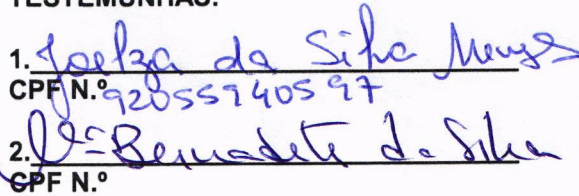 TESTEMUNHAS:
1. Joelza da Silva Menezes
CPF N.º 92055940597
2. Mª Bernadete da Silva
CPF N.º